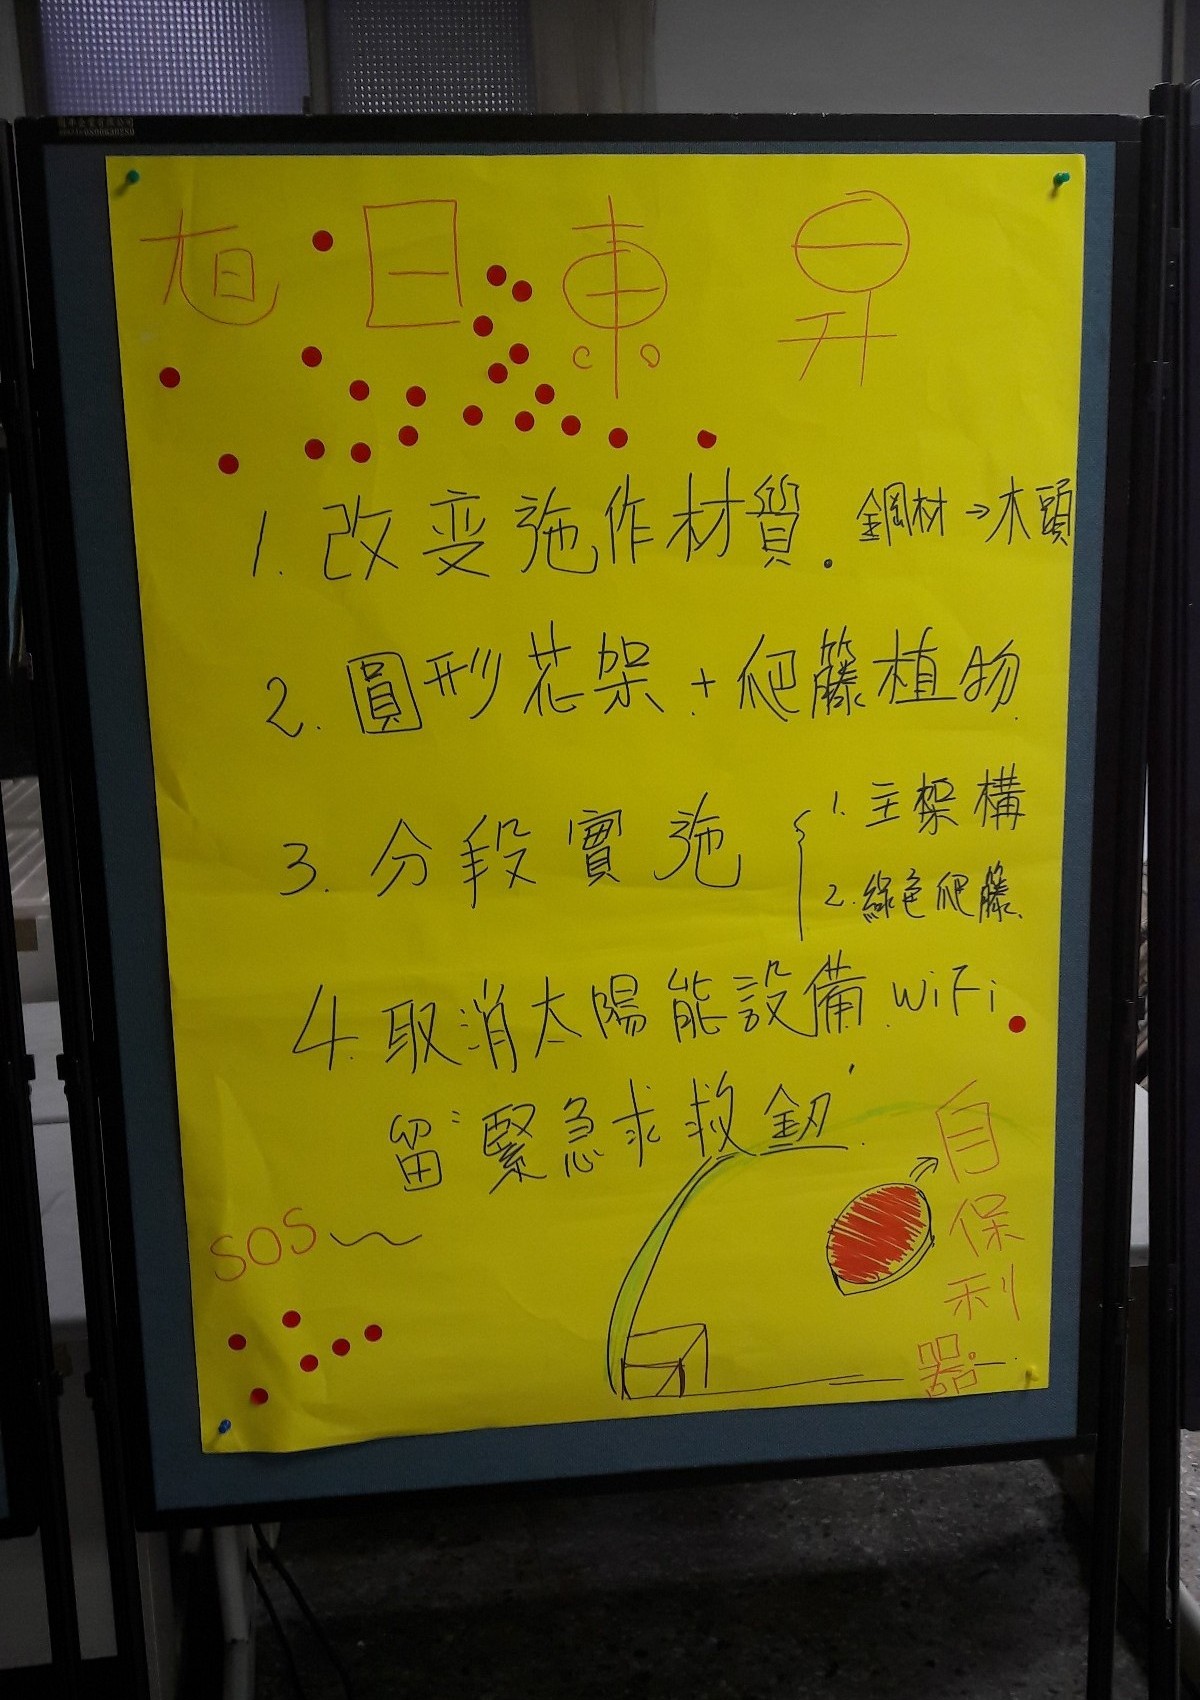 旭日東昇
1. 改变施作材質. 鋼材→木頭
2. 圓形花架+爬藤植物.
3. 分段實施 { 1. 主架構
2. 綠色爬藤.
4. 取消太陽能設備. WiFi
留: 緊急求救鈕.
SOS
自保利器